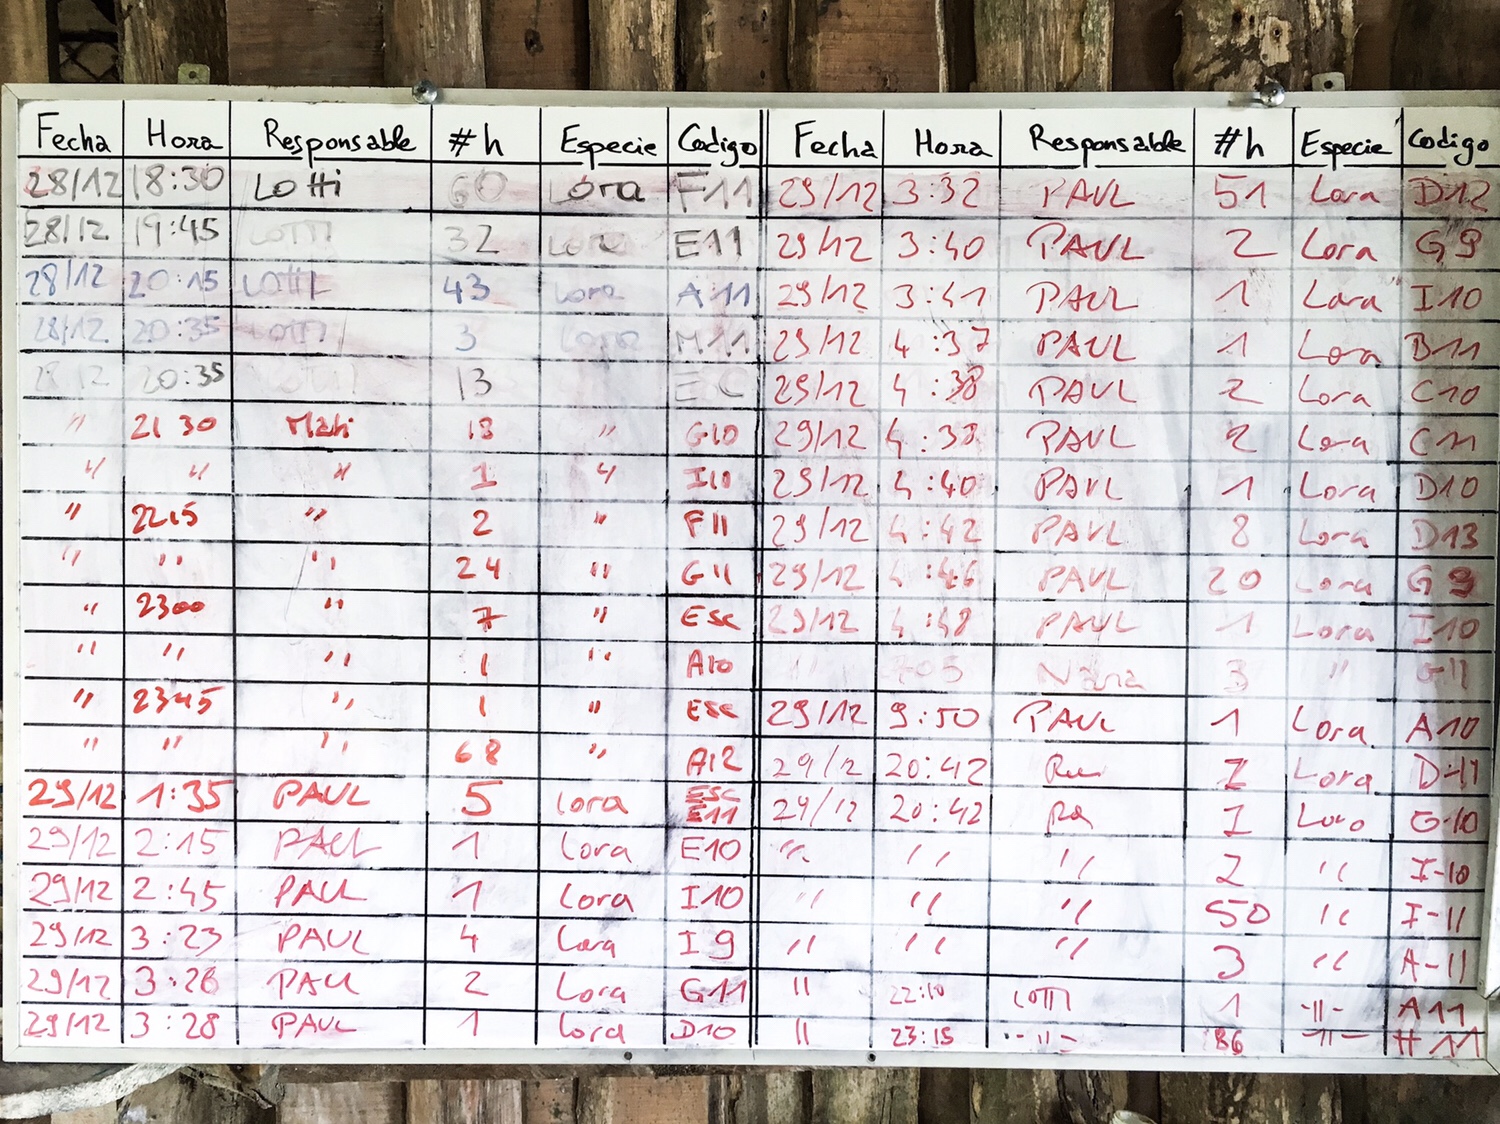 Fecha Hora Responsable #h Especie Codigo Fecha Hora Responsable #h Especie Codigo
28/12 18:30 Lotti 60 Lora F11 29/12 3:32 PAUL 51 Lora D12
28/12 19:45 LOTTI 32 Lora E11 29/12 3:40 PAUL 2 Lora G9
28/12 20:15 LOTTI 43 Lora A11 29/12 3:41 PAUL 1 Lora I10
28/12 20:35 LOTTI 3 Lora M11 29/12 4:37 PAUL 1 Lora B11
28/12 20:35 13 29/12 4:38 PAUL 2 Lora C10
" 21 30 13 " G10 29/12 PAUL 2 Lora C11
" " " 1 " I10 29/12 4:40 PAUL 1 Lora D10
" 2215 " 2 " F11 29/12 4:42 PAUL 8 Lora D13
" " " 24 " G11 29/12 4:46 PAUL 20 Lora G9
" 2300 " 7 " Esc 29/12 4:48 PAUL 1 Lora I10
" " " 1 " A10 " 3 " G11
" 2345 " 1 " Esc 29/12 9:50 PAUL 1 Lora A10
" " " 68 " A12 29/12 20:42 1 Lora D-11
29/12 1:35 PAUL 5 Lora ESC E11 29/12 20:42 1 Lora G-10
29/12 2:15 PAUL 1 Lora E10 " " " 2 " I-10
29/12 2:45 PAUL 1 Lora I10 " " " 50 " I-11
29/12 3:23 PAUL 4 Lora I9 " " " 3 " A-11
29/12 3:26 PAUL 2 Lora G11 " 22:10 LOTTI 1 -"- A11
29/12 3:28 PAUL 1 Lora D10 " 23:15 -"- 86 -"- H11